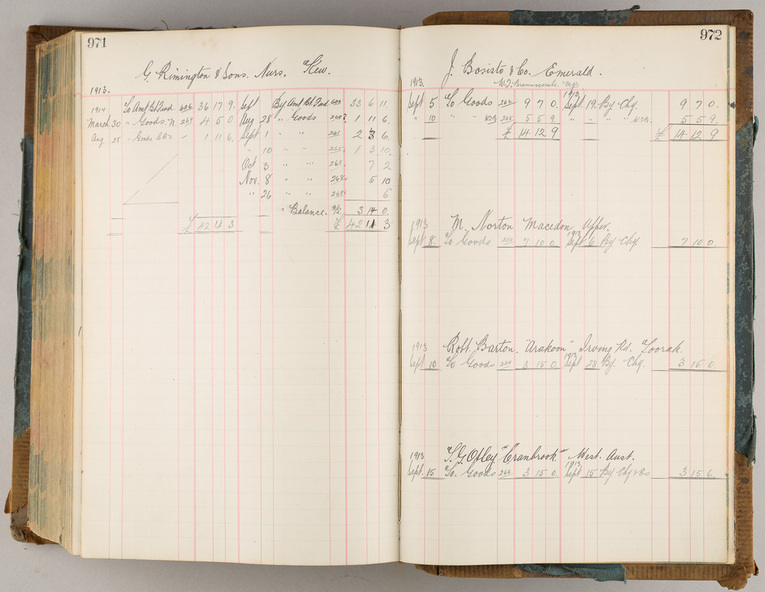 971
G. Rimington & Sons. Nurs. Kew.
1913.
1914 To Amt Bt Fwd. 36 17 9. Sept By Amt Bt Fwd 33 6 11
March 30 " Goods. N. 4 5 0 Aug 28 " Goods 1 11 6.
Aug 25 1 11 6. Sept 1 " " 2 3 6.
" 10 " " 1 3 10.
Oct 3 " " 7 2
Nov. 8 " " 5 10
" 26 " " 6
" Balance. 3 14 0.
£ 42 14 3 £ 42 14 3
972
J. Bosisto & Co. Emerald.
1913. 1913
Sept 5 To Goods 9 7 0. Sept 19. By Chq. 9 7 0.
" 10 " " 5 5 9 " " " " 5 5 9.
£ 14 12 9 £ 14 12 9
1913 M. Norton Macedon Upper.
1913
Sept 8. To Goods 7 10 0. Sept 6. By Chq 7 10 0.
1913 Robt. Barton. "Arakoon" Irving Rd. Toorak.
1913
Sept 10 To Goods 3 15 0. Sept 23. By Chq. 3 15 0.
1913 "Cranbrook" West. Aust.
1913
Sept. 15 To Goods 3 15 0. Sept 15 By Chq 3 15 6.